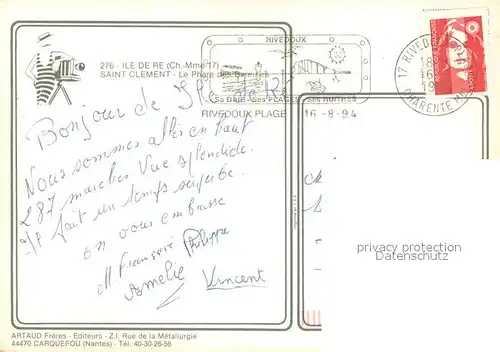 276 - ILE DE RE (Ch.-Mme 17)
SAINT CLEMENT - Le Phare des Baleines
RIVEDOUX
Sa BAIE - Ses PLAGES - Ses HUITRES
RIVEDOUX PLAGE 16-8-94
17 RIVEDOUX
18
16
19
CHARENTE
Bonjour de Ile de Ré
Nous sommes allés en haut
287 marches Vue splendide.
Il fait un temps superbe.
on vous embrasse
M Françoise Philippe
Amelie Vincent
privacy protection
Datenschutz
ARTAUD Frères - Editeurs - Z.I. Rue de la Métallurgie
44470 CARQUEFOU (Nantes) - Tél. 40-30-26-56